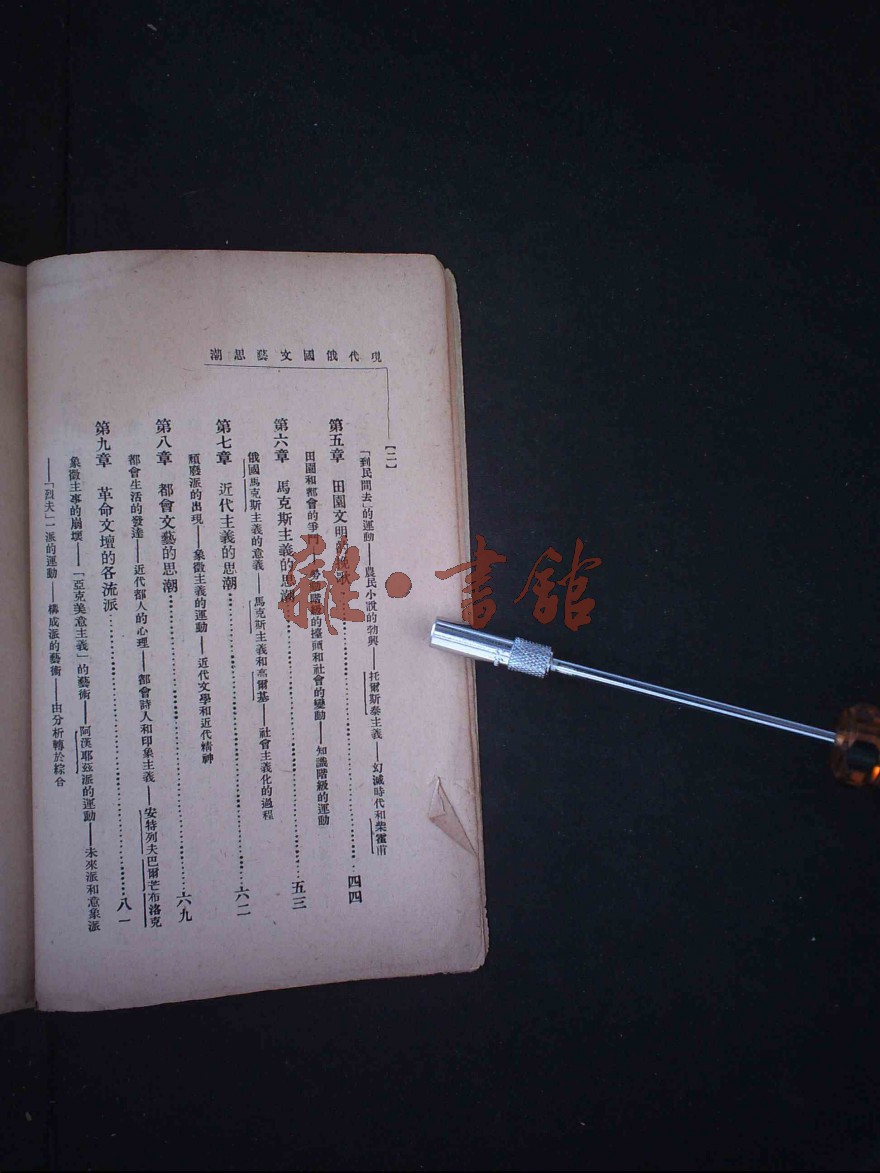 現代俄國文藝思潮
【二】
「到民間去」的運動——農民小說的勃興——托爾斯泰主義——幻滅時代和柴霍甫
第五章　田園文明的挽歌……四四
田園和都會的爭鬥——勞動階級的擡頭和社會的變動——知識階級的運動
第六章　馬克斯主義的思潮……五三
俄國馬克斯主義的意義——馬克斯主義和高爾基——社會主義化的過程
第七章　近代主義的思潮……六二
頹廢派的出現——象徵主義的運動——近代文學和近代精神
第八章　都會文藝的思潮……六九
都會生活的發達——近代都人的心理——都會詩人和印象主義——安特列夫巴爾芒布洛克
第九章　革命文壇的各流派……八一
象徵主事的崩壞——「亞克美意主義」的藝術——阿漢耶茲派的運動——未來派和意象派
——「烈夫」一派的運動——構成派的藝術——由分析轉於綜合
雜·書館